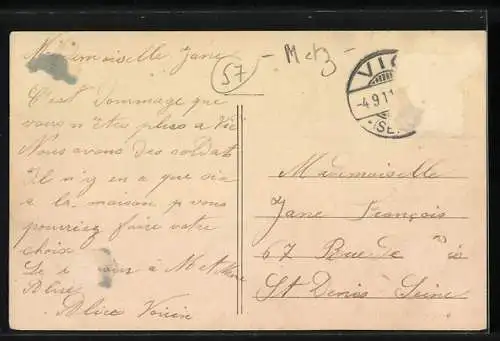 Mademoiselle Jane
57 - Metz -
VIC
-4.9.11
C'est dommage que
vous n'êtes pluss a Vic
Nous avons des soldats
Il n'y en a que six
a la maison
pourriez faire votre
choix
Alice
Alice Voirin
Mademoiselle
Jane François
67 Rue de
St Denis Seine